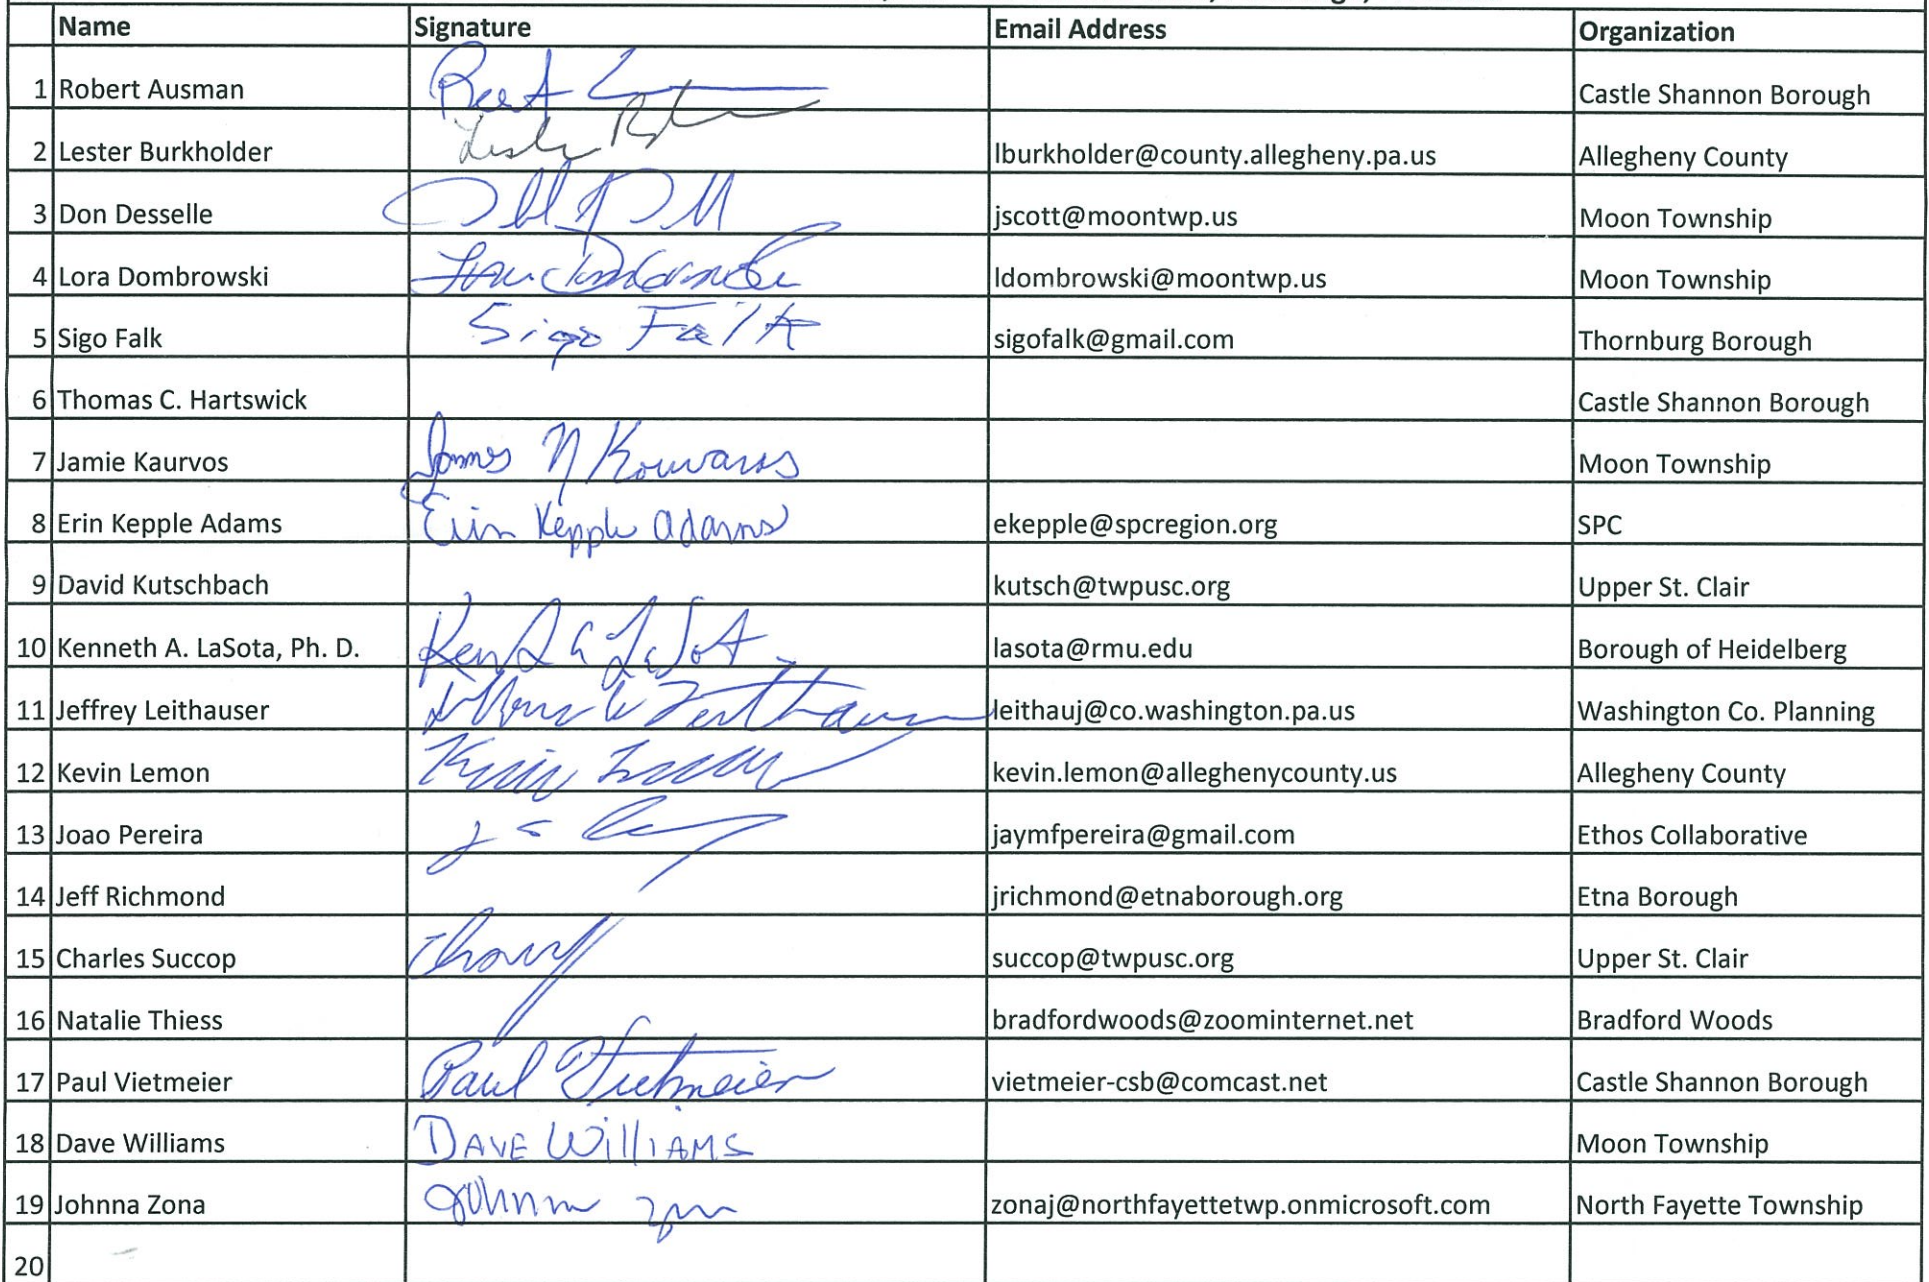 Name Signature Email Address Organization
1 Robert Ausman Castle Shannon Borough
2 Lester Burkholder lburkholder@county.allegheny.pa.us Allegheny County
3 Don Desselle jscott@moontwp.us Moon Township
4 Lora Dombrowski ldombrowski@moontwp.us Moon Township
5 Sigo Falk Sigo Falk sigofalk@gmail.com Thornburg Borough
6 Thomas C. Hartswick Castle Shannon Borough
7 Jamie Kaurvos James N Kouvaros Moon Township
8 Erin Kepple Adams Erin Kepple Adams ekepple@spcregion.org SPC
9 David Kutschbach kutsch@twpusc.org Upper St. Clair
10 Kenneth A. LaSota, Ph. D. lasota@rmu.edu Borough of Heidelberg
11 Jeffrey Leithauser leithauj@co.washington.pa.us Washington Co. Planning
12 Kevin Lemon kevin.lemon@alleghenycounty.us Allegheny County
13 Joao Pereira jaymfpereira@gmail.com Ethos Collaborative
14 Jeff Richmond jrichmond@etnaborough.org Etna Borough
15 Charles Succop succop@twpusc.org Upper St. Clair
16 Natalie Thiess bradfordwoods@zoominternet.net Bradford Woods
17 Paul Vietmeier Paul Vietmeier vietmeier-csb@comcast.net Castle Shannon Borough
18 Dave Williams DAVE WilliAMS Moon Township
19 Johnna Zona Johnna zonaj@northfayettetwp.onmicrosoft.com North Fayette Township
20